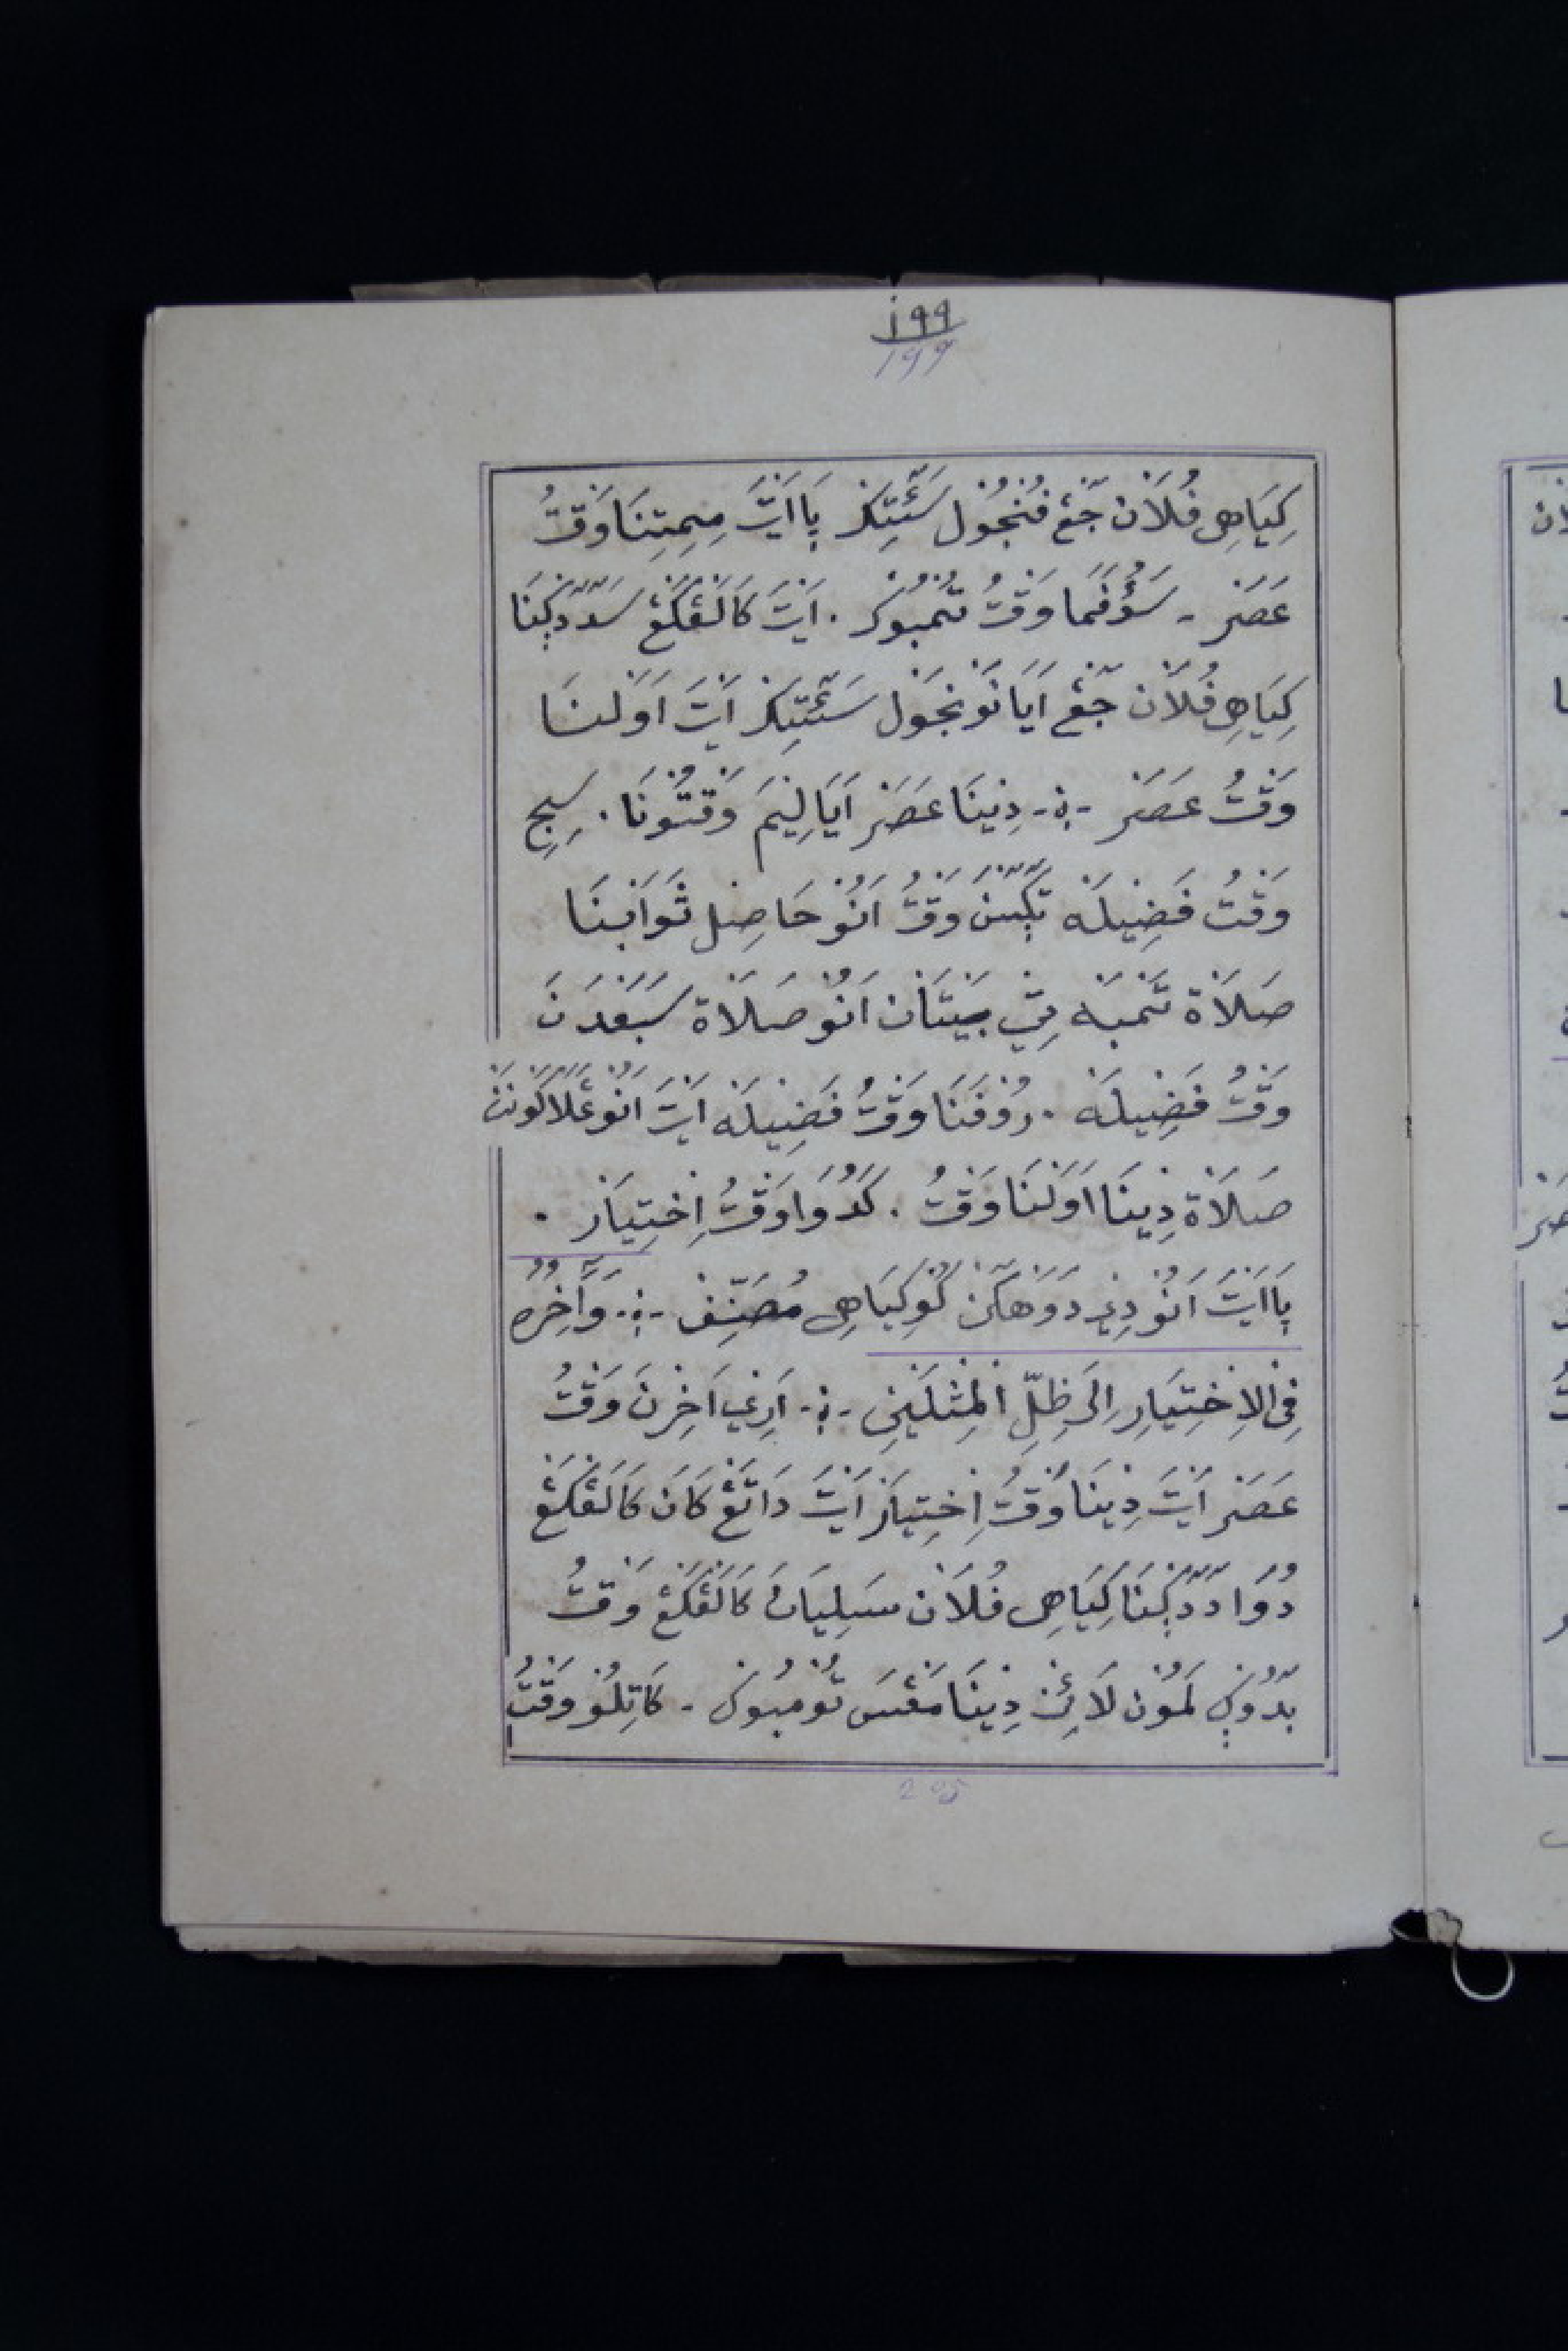 ١٩٩
١٩٩
كِيَاهِى فُلَان جّڠ فُنْجُوْل سَئَتِكْرْ ݒَااَيْتَ مِيمِتِنَا وَقْتُ
عَصَرْ - سَؤُفَمَا وَقْتُ تُمْبُوْكْ . اَيْتَ كَالَڠْكَڠْ سَدّدَكِنَا
كِيَاهِى فُلَان جّڠ اَيَا نَوْنْجَوْل سَئَتِكْرْ اَيْتَ اَوَلْنَا
وَقْتُ عَصَرْ -:- دِيْنَا عَصَرْ اَيَا لِيْمَ وَقْتُوْنَا . سِجِ
وَقْتُ فَضِيْلَه تٓݢٓسْنَ وَقْتُ اَنُوْ حَاصِلْ ثَوَابْنَا
صَلَاة تَمْبَه تِيْ بَيْتَان اَنُوْ صَلَاة سَبَعْدَنَ
وَقْتُ فَضِيْلَه . رُوْفَنَا وَقْتُ فَضِيْلَه اَيْتَ اَنُوْ عَلَاكُوْنَنَ
صَلَاة دِيْنَا اَوَلْنَا وَقْتُ . كَدُوَا وَقْتُ اِخْتِيَارْ .
ݒَااَيْتَ اَنُوْ دِيْ دَوَهْكٓنْ كُوْ كِيَاهِى مُصَنِّفْ -:- وَاٰخِرُهُ
فِى الْاِخْتِيَارِ اِلَى ظِلِّ الْمِثْلَيْنِ -:- اَرِيْ اَخِرْنَ وَقْتُ
عَصَرْ اَيْتَ دِيْنَا وَقْتُ اِخْتِيَارْ اَيْتَ دَاتَڠْ كَانَ كَالَڠْكَڠْ
دُوَا دَدَّكِنَا كِيَاهِى فُلَان سَلِيَانْ كَالَڠْكَڠْ وَقْتُ
بدُوْكِ لَمُوْن لَائِنْ دِيْنَا مَڠْسَ تُوْمْبُوْكْ - كَاتِلُوْ وَقْتُ
205